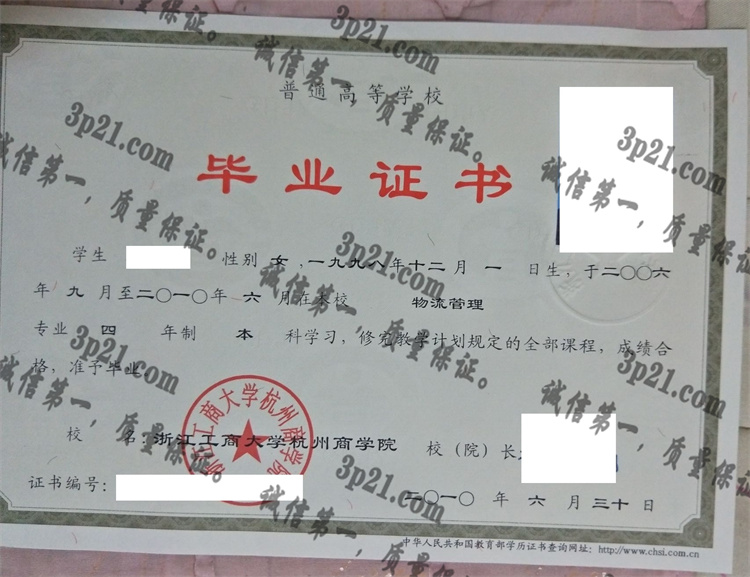 普通高等学校
毕业证书
学生 性别 女,一九九八年十二月 一 日生,于二〇〇六
年 九 月至二〇一〇年 六 月在本校 物流管理
专业 四 年制 本 科学习,修完教学计划规定的全部课程,成绩合
格,准予毕业。
校 名:浙江工商大学杭州商学院 校(院)长:
浙江工商大学杭州商学院
证书编号:
二〇一〇 年 六 月 三十 日
中华人民共和国教育部学历证书查询网址:http://www.chsi.com.cn
3p21.com
诚信第一,质量保证。
3p21.com
诚信第一,质量保证。
3p21.com
诚信第一,质量保证。
3p21.com
诚信第一,质量保证。
3p21.com
诚信第一,质量保证。
3p21.com
诚信第一,质量保证。
3p21.com
诚信第一,质量保证。